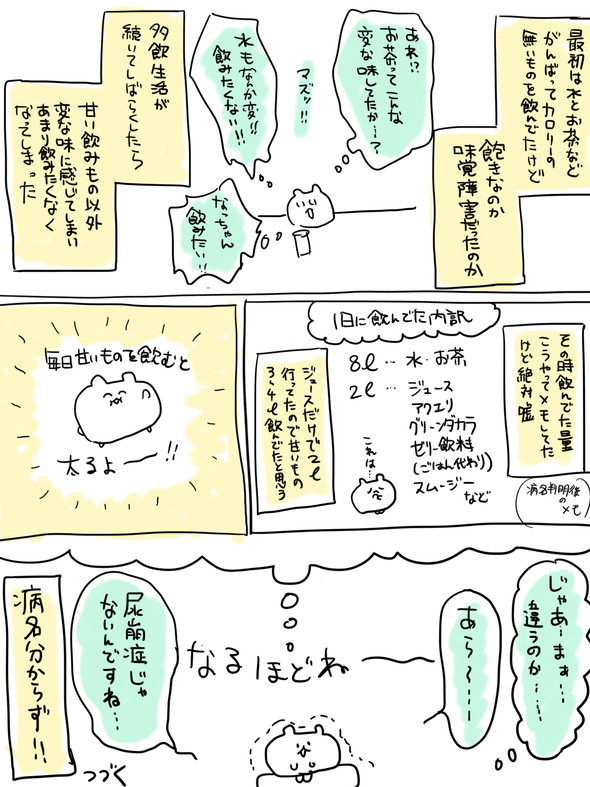 最初は水とお茶など
がんばってカロリーの
無いものを飲んでたけど
飽きなのか
味覚障害だったのか
あれ!?
お茶ってこんな
変な味してたか…?
マズッ!!
水もなんか変!!
飲みたくない!!!
なっちゃん
飲みたい!!
多飲生活が
続いてしばらくしたら
甘い飲みもの以外
変な味に感じてしまい
あまり飲みたくなく
なってしまった
1日に飲んでた内訳
その時飲んでた量
こうやってメモしてた
けど絶対嘘
病名判明後
の
メモ
8ℓ … 水・お茶
2ℓ … ジュース
アクエリ
グリーンダカラ
ゼリー飲料
(ごはん代わり)
スムージー
など
これは…
ジュースだけで2ℓ
行ってたので甘いもの
3、4ℓ飲んでたと思う
毎日甘いものを飲むと
太るよー!!
じゃあーまぁ…
違うのか……
あら〜…
なるほどね
尿崩症じゃ
ないんですね…
病名分からず!!
つづく